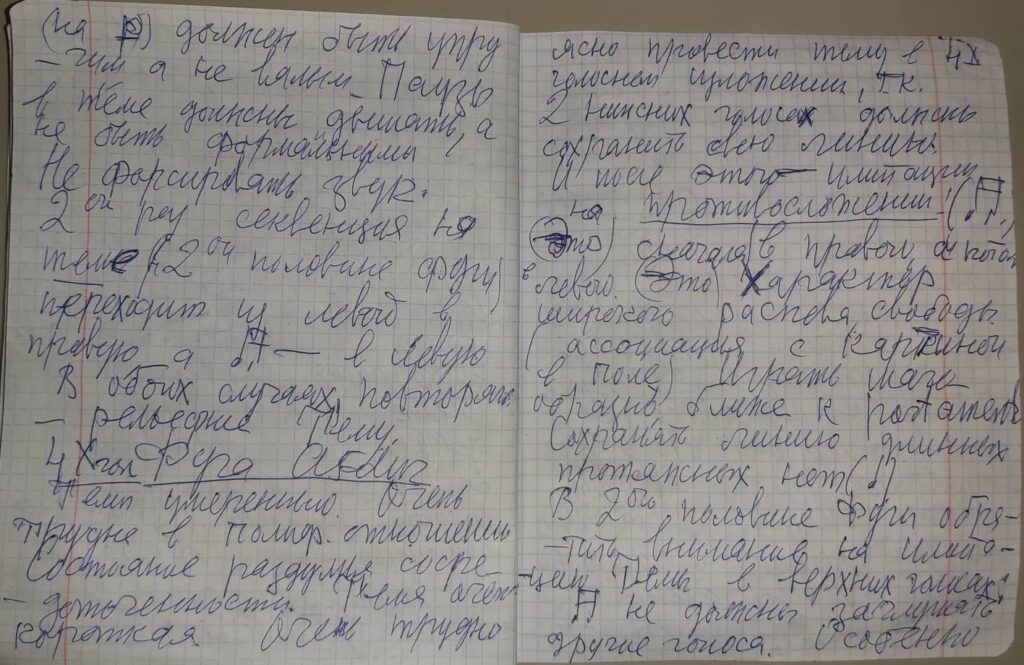 (на р) должен быть упру
- гим а не вялым. Паузы
в теме должны дышать, а
не быть формальными
Не форсировать звук.
2ой раз секвенция на
теме (2ой половине фуги)
переходит из левой в
правую а ♫ — в левую
В обоих случаях, повторяю
- рельефнее Тему.
4х гол Фуга
Темп умеренный. Очень
трудна в полиф. отношении
Состояние раздумья сосре
- доточенности. Тема очень
короткая Очень трудно
ясно провести тему в 4х
голосном изложении, т.к.
2 нижних голоса должны
сохранить свою линию.
И после этого имитации
на противосложении. (♫.
(Это) сначала в правого, а потом
в левого. (Это) Характер
широкого распева, свободы.
(ассоциация с картиной
в поле) играть
образно ближе к
Сохранять линию длинных
протяжных нот (♩)
В 2ой половине Фуги обра-
- тить внимание на имита-
- цию Темы в верхних голосах;
♫ не должны заглушать
другие голоса. Особенно